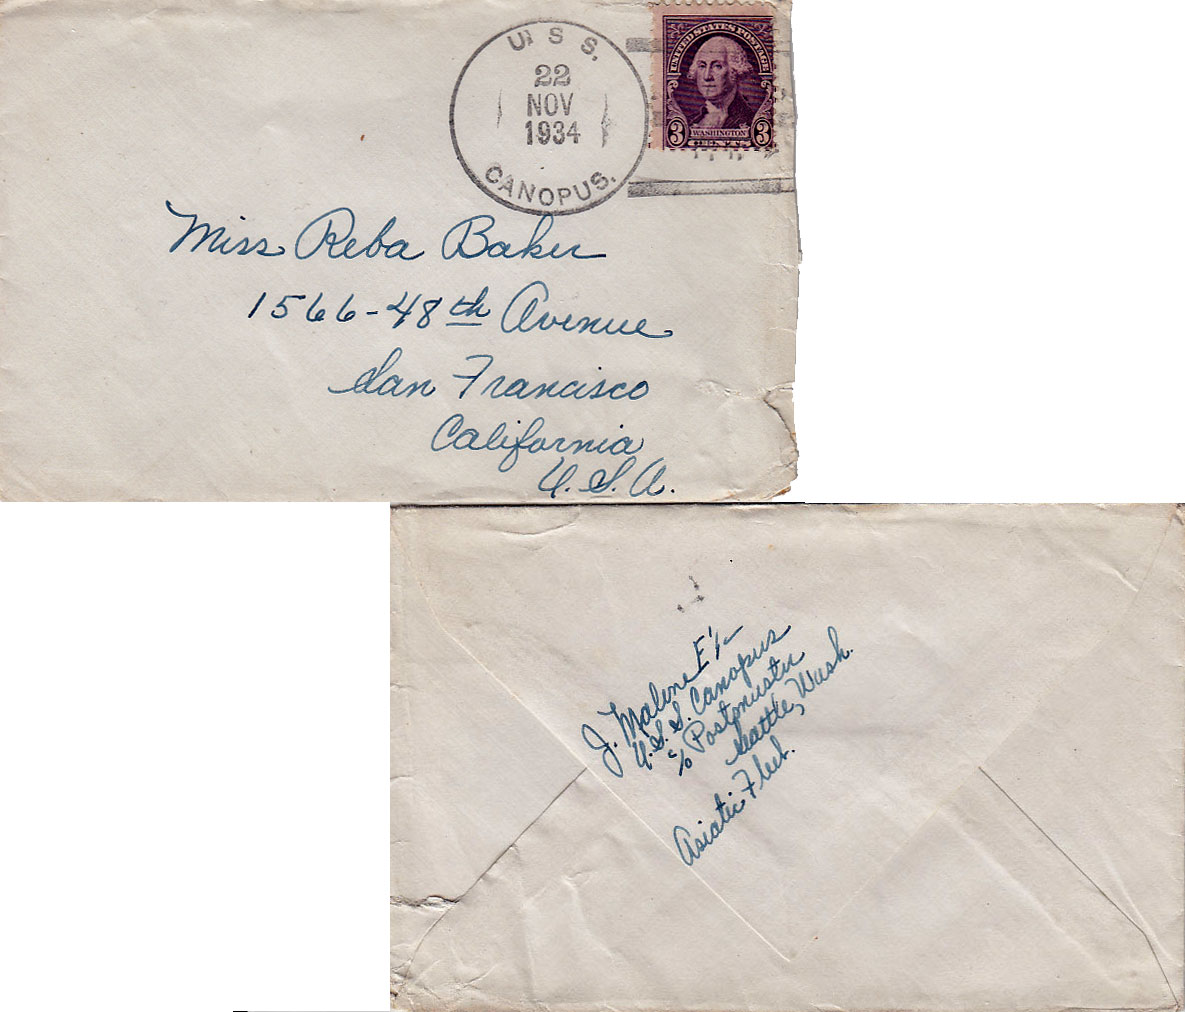 U.S.S.
22
NOV
1934
CANOPUS.
UNITED STATES POSTAGE
3 WASHINGTON 3
CENTS
Miss Reba Baker
1566-48th Avenue
San Francisco
California
U.S.A.
J. Malone
U.S.S. Canopus
c/o Postmaster
Seattle, Wash.
Asiatic Fleet.